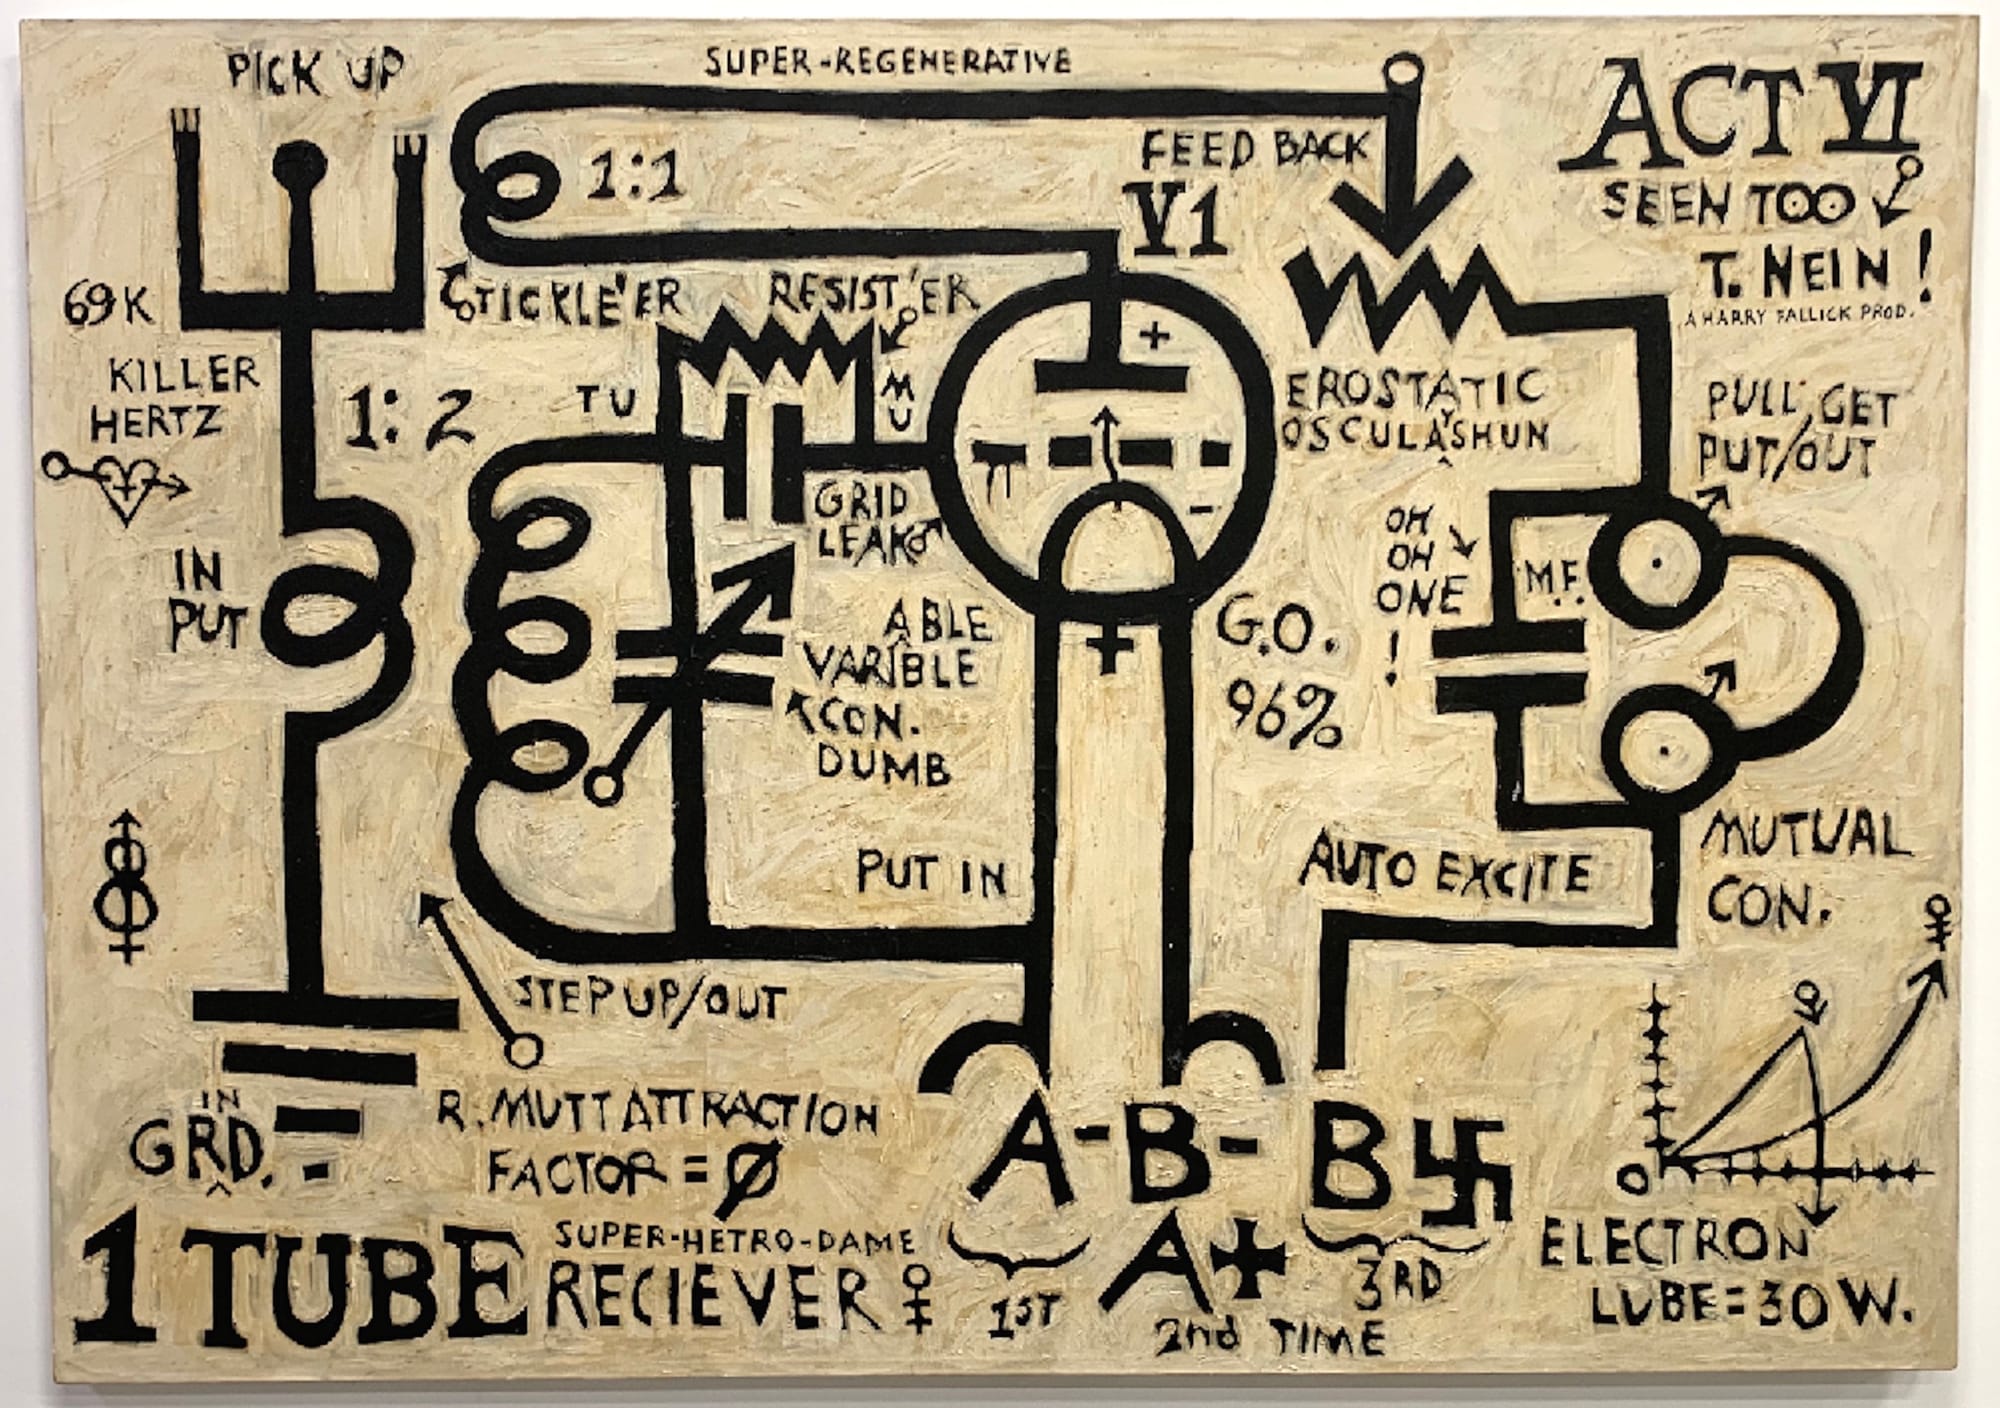 PICK UP
SUPER-REGENERATIVE
ACT VI
FEED BACK
1:1
V1
SEEN TOO
T. NEIN!
A HARRY FALLICK PROD.
69K
TICKLE'ER
RESIST'ER
KILLER
HERTZ
1:2
TU
MU
+
EROSTATIC
OSCULASHUN
PULL, GET
PUT/OUT
GRID
LEAK
-
OH
OH
ONE
!
M.F.
IN
PUT
ABLE
VARIBLE
CON.
DUMB
+
G.O.
96%
PUT IN
AUTO EXCITE
MUTUAL
CON.
STEP UP/OUT
OH
R. MUTT ATTRACTION
FACTOR = Ø
IN
GRD.
A- B- B卐
A+
1ST
2nd TIME
3RD
0
ELECTRON
LUBE = 30 W.
1 TUBE
SUPER-HETRO-DAME
RECIEVER